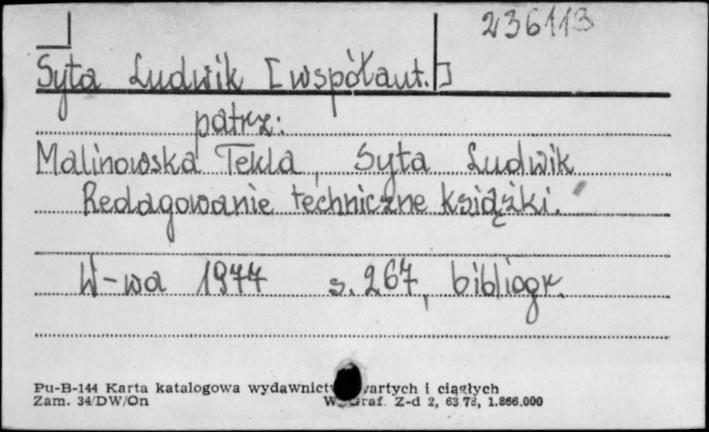 236113
Syta Ludwik [współaut.]
patrz:
Malinowska Tekla, Syta Ludwik
Redagowanie techniczne książki.
W-wa 1977 s. 267, bibliogr.
Pu-B-144 Karta katalogowa wydawnict wartych i ciągłych
Zam. 34/DW/On Graf. Z-d 2, 63 78, 1.866.000